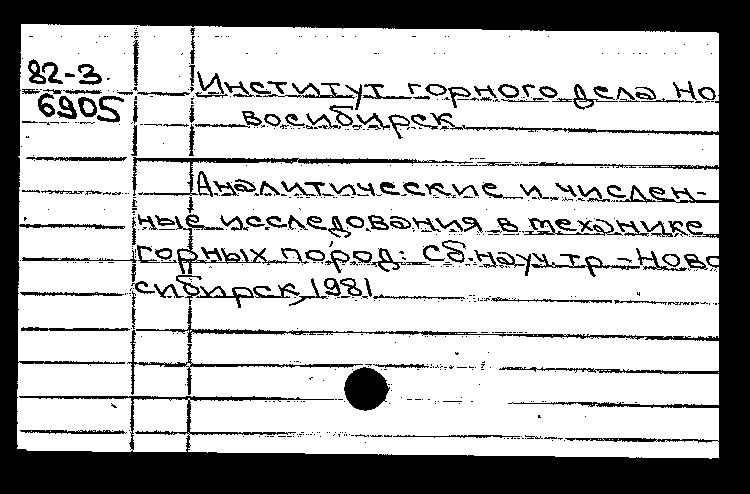 82-3
6905
Институт горного дела Но
восибирск
Аналитические и числен-
ные исследования в механике
горных пород: Сб. науч. тр – Ново
сибирск, 1981